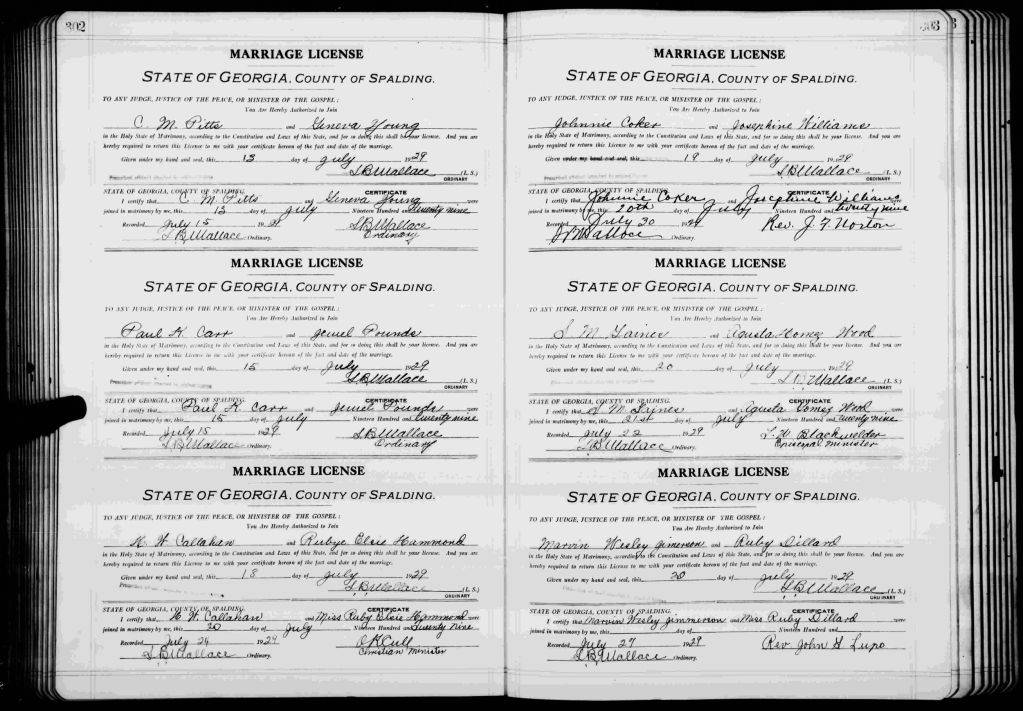 302
MARRIAGE LICENSE
STATE OF GEORGIA, COUNTY OF SPALDING.
TO ANY JUDGE, JUSTICE OF THE PEACE, OR MINISTER OF THE GOSPEL:
You Are Hereby Authorized to Join
C. M. Pitts and Geneva Young
in the Holy State of Matrimony, according to the Constitution and Laws of this State, and for so doing this shall be your license. And you are
hereby required to return this License to me with your certificate hereon of the fact and date of the marriage.
Given under my hand and seal, this 13 day of July 1929
S.B. Wallace (L. S.)
ORDINARY
STATE OF GEORGIA, COUNTY OF SPALDING. CERTIFICATE
I certify that C. M. Pitts and Geneva Young were
joined in matrimony by me, this 13 day of July Nineteen Hundred and twenty nine
Recorded July 15 1929 S.B. Wallace
S.B. Wallace Ordinary. Ordinary
MARRIAGE LICENSE
STATE OF GEORGIA, COUNTY OF SPALDING.
TO ANY JUDGE, JUSTICE OF THE PEACE, OR MINISTER OF THE GOSPEL:
You Are Hereby Authorized to Join
Paul K Carr and Jewel Pounds
in the Holy State of Matrimony, according to the Constitution and Laws of this State, and for so doing this shall be your license. And you are
hereby required to return this License to me with your certificate hereon of the fact and date of the marriage.
Given under my hand and seal, this 15 day of July 1929
S.B. Wallace (L. S.)
ORDINARY
STATE OF GEORGIA, COUNTY OF SPALDING. CERTIFICATE
I certify that Paul K. Carr and Jewel Pounds were
joined in matrimony by me, this 15 day of July Nineteen Hundred and twenty nine
Recorded July 15 1929 S.B. Wallace
S.B. Wallace Ordinary. Ordinary
MARRIAGE LICENSE
STATE OF GEORGIA, COUNTY OF SPALDING.
TO ANY JUDGE, JUSTICE OF THE PEACE, OR MINISTER OF THE GOSPEL:
You Are Hereby Authorized to Join
H. W. Callahan and Rubye Elsie Hammond
in the Holy State of Matrimony, according to the Constitution and Laws of this State, and for so doing this shall be your license. And you are
hereby required to return this License to me with your certificate hereon of the fact and date of the marriage.
Given under my hand and seal, this 18 day of July 1929
S.B. Wallace (L. S.)
ORDINARY
STATE OF GEORGIA, COUNTY OF SPALDING. CERTIFICATE
I certify that H. W. Callahan and Miss Ruby Elsie Hammond were
joined in matrimony by me, this 20 day of July Nineteen Hundred and Twenty Nine
Recorded July 24 1929 Cull
S.B. Wallace Ordinary. Christian Minister
303
MARRIAGE LICENSE
STATE OF GEORGIA, COUNTY OF SPALDING.
TO ANY JUDGE, JUSTICE OF THE PEACE, OR MINISTER OF THE GOSPEL:
You Are Hereby Authorized to Join
Johnnie Coker and Josephine Williams
in the Holy State of Matrimony, according to the Constitution and Laws of this State, and for so doing this shall be your license. And you are
hereby required to return this License to me with your certificate hereon of the fact and date of the marriage.
Given under my hand and seal, this 19 day of July 1929
S.B. Wallace (L. S.)
ORDINARY
STATE OF GEORGIA, COUNTY OF SPALDING. CERTIFICATE
I certify that Johnnie Coker and Josephine Williams were
joined in matrimony by me, this 20th day of July Nineteen Hundred and twenty nine
Recorded July 30 1929 Rev. J. F. Norton
S.B. Wallace Ordinary.
MARRIAGE LICENSE
STATE OF GEORGIA, COUNTY OF SPALDING.
TO ANY JUDGE, JUSTICE OF THE PEACE, OR MINISTER OF THE GOSPEL:
You Are Hereby Authorized to Join
M and Wood
in the Holy State of Matrimony, according to the Constitution and Laws of this State, and for so doing this shall be your license. And you are
hereby required to return this License to me with your certificate hereon of the fact and date of the marriage.
Given under my hand and seal, this 20 day of July 1929
S.B. Wallace (L. S.)
ORDINARY
STATE OF GEORGIA, COUNTY OF SPALDING. CERTIFICATE
I certify that M and Gomez Wood were
joined in matrimony by me, this 21st day of July Nineteen Hundred and twenty nine
Recorded July 22 1929 Blackwelder
S.B. Wallace Ordinary. Episcopal Minister
MARRIAGE LICENSE
STATE OF GEORGIA, COUNTY OF SPALDING.
TO ANY JUDGE, JUSTICE OF THE PEACE, OR MINISTER OF THE GOSPEL:
You Are Hereby Authorized to Join
Marvin Wesley Jimerson and Ruby Dillard
in the Holy State of Matrimony, according to the Constitution and Laws of this State, and for so doing this shall be your license. And you are
hereby required to return this License to me with your certificate hereon of the fact and date of the marriage.
Given under my hand and seal, this 20 day of July 1929
S.B. Wallace (L. S.)
ORDINARY
STATE OF GEORGIA, COUNTY OF SPALDING. CERTIFICATE
I certify that Marvin Wesley Jimmerson and Miss Ruby Dillard were
joined in matrimony by me, this day of Nineteen Hundred and
Recorded July 27 1929 Rev John G Lupo
S.B. Wallace Ordinary.